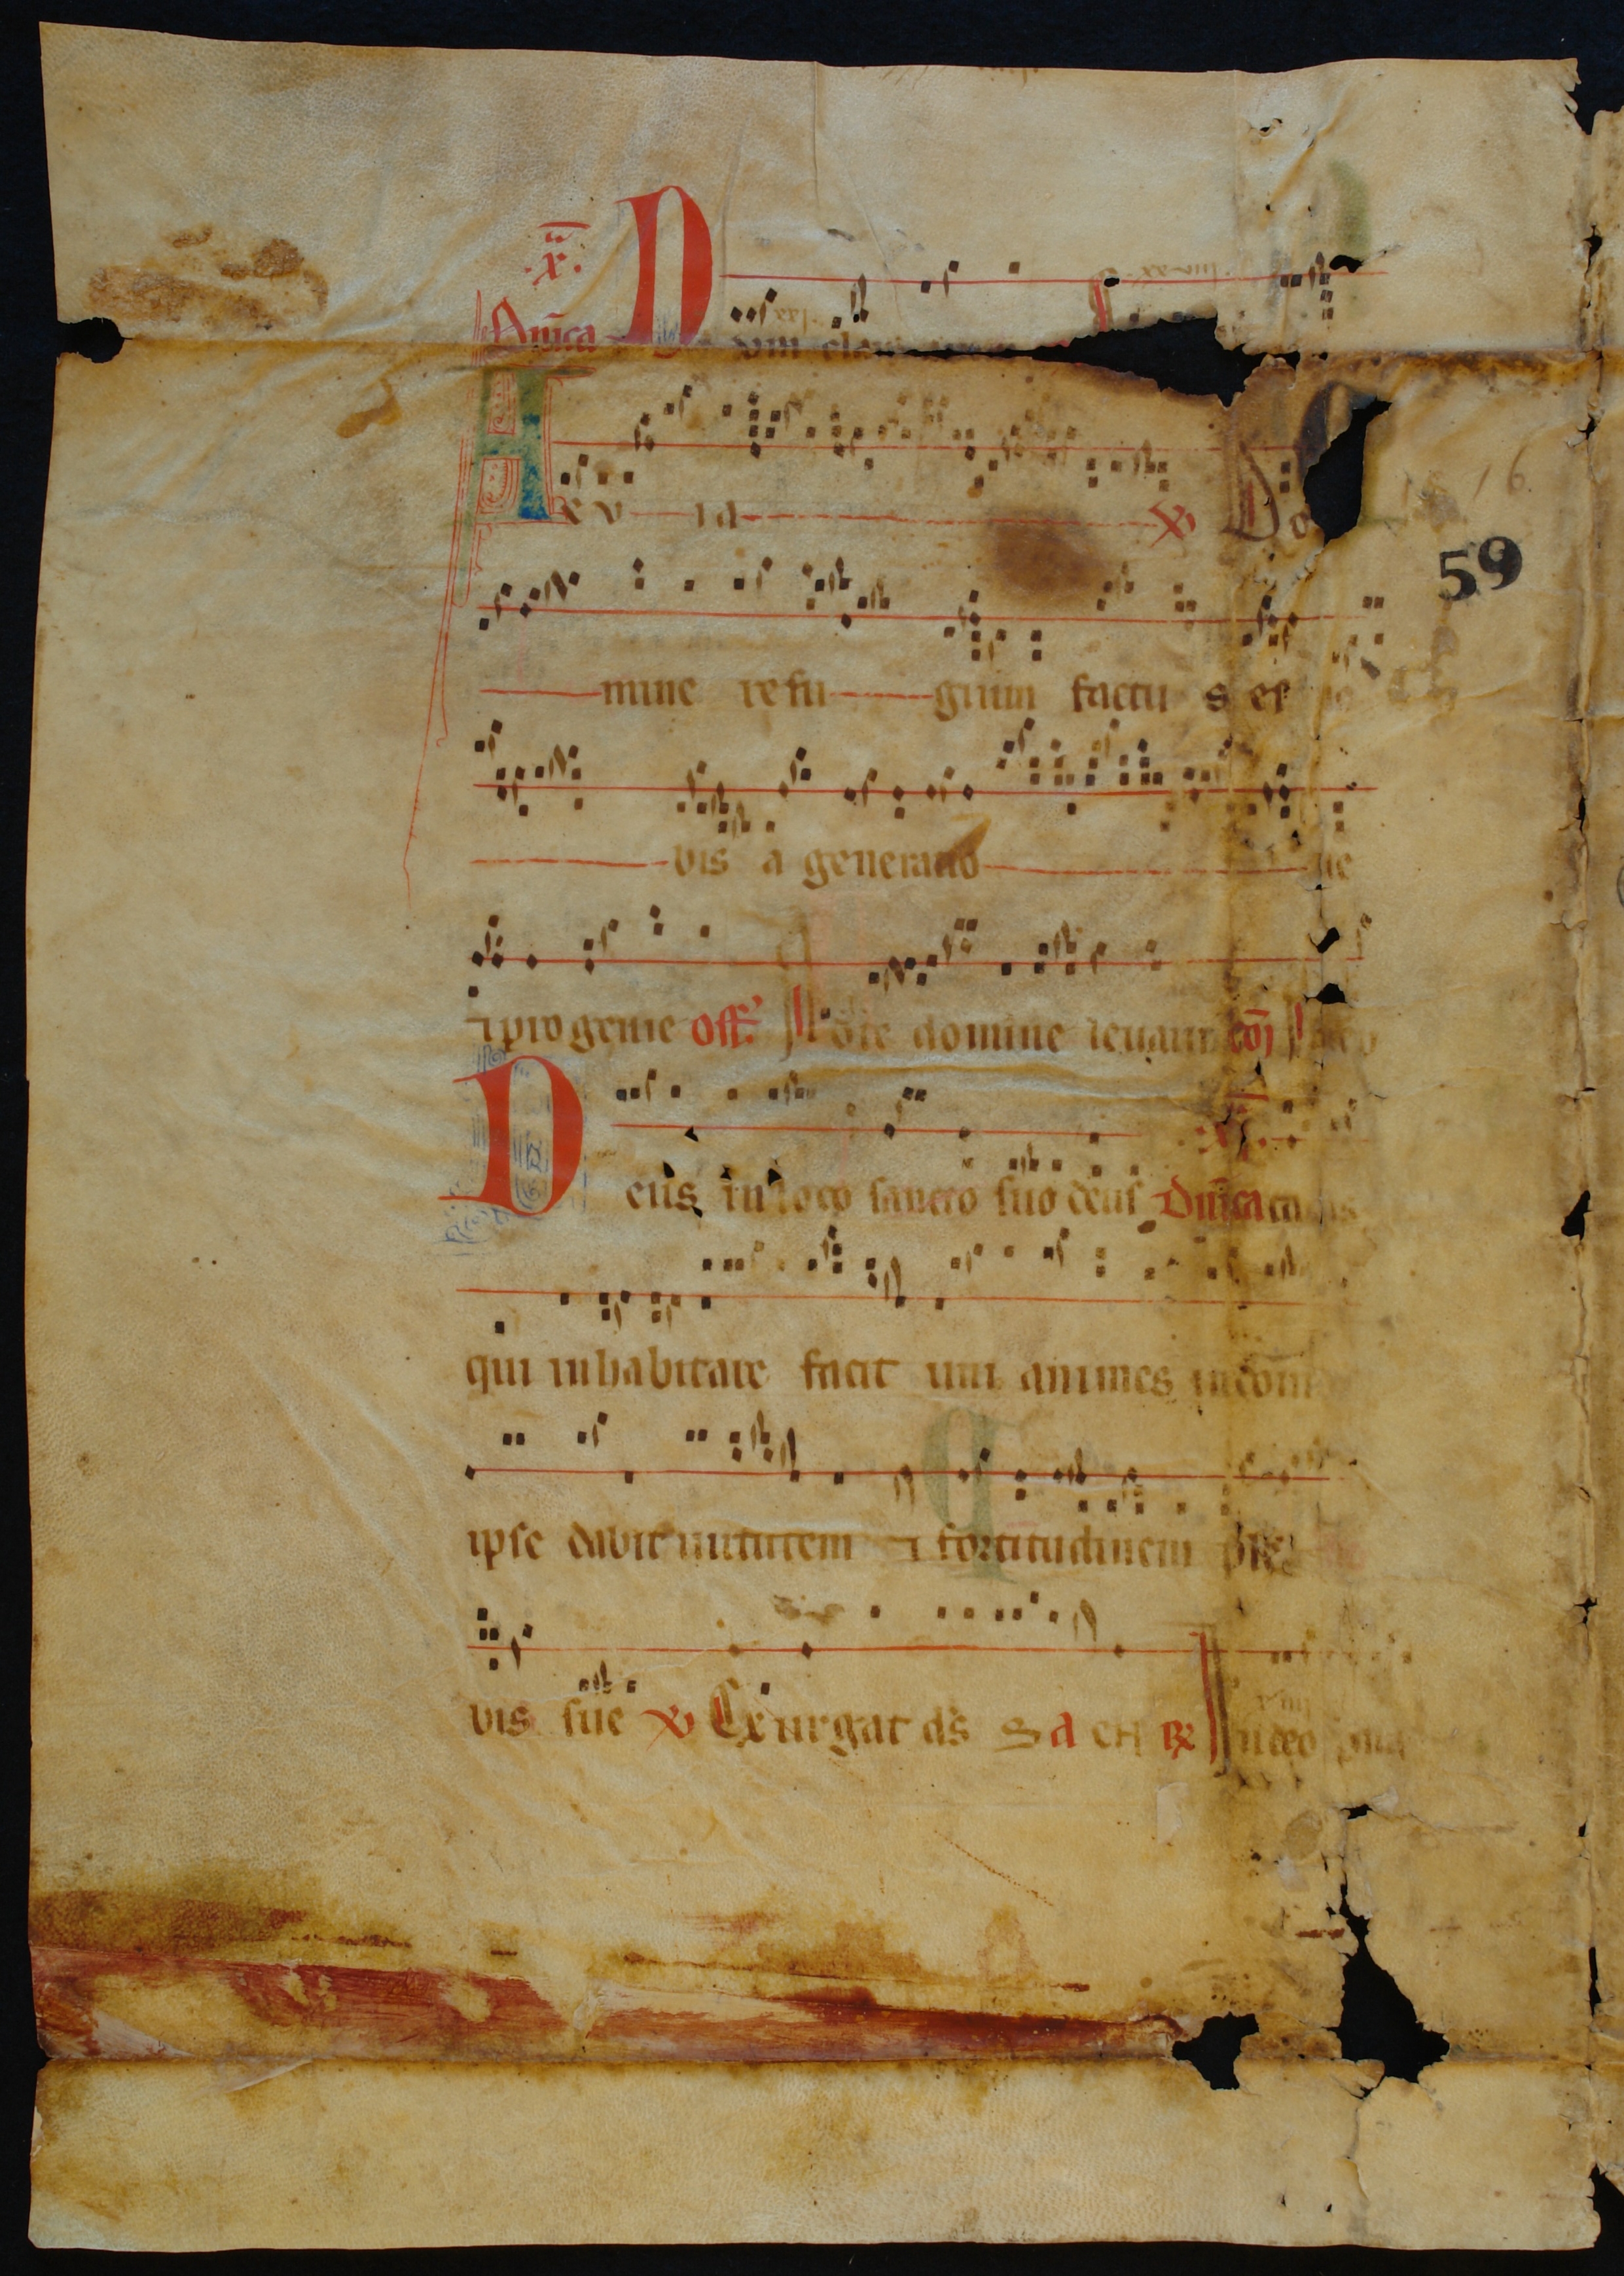 .x.
Dñica D um clam
A eu ia ℣ Do
mine refu gium factu s es no
bis a generatio ne
⁊ progenie off. A d te domine leuaui cō
D eus in loco sancto suo deus Dñica
qui inhabitare facit uni animes in dom
ipse dabit uirtutem ⁊ fortitudinem ple
bis sue ℣ Exurgat ds S a eu ℟ In deo
59
16